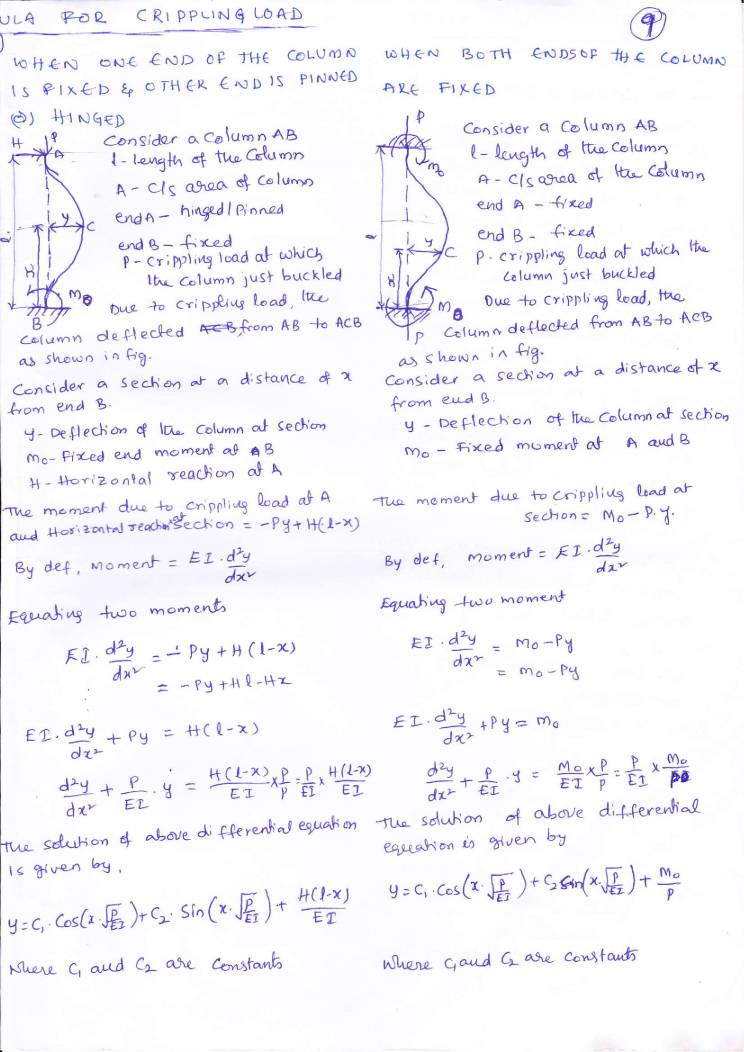 ULA FOR CRIPPLING LOAD
9
WHEN ONE END OF THE COLUMN
IS FIXED & OTHER END IS PINNED
(Or) HINGED
Consider a Column AB
l - length of the Column
A - C/s area of Column
end A - hinged / Pinned
end B - fixed
P - Crippling load at which
the column just buckled
Due to crippling load, the
column deflected from AB to ACB
as shown in fig.
Consider a section at a distance of x
from end B.
y - Deflection of the Column at section
Mo - Fixed end moment at B
H - Horizontal reaction at A
The moment due to crippling load at A
and Horizontal reaction at section = -Py + H(l-x)
By def, Moment = EI . d²y/dx²
Equating two moments
EI . d²y/dx² = - Py + H(l-x)
= -Py + Hl - Hx
EI . d²y/dx² + Py = H(l-x)
d²y/dx² + P/EI . y = H(l-x)/EI × P/P = P/EI × H(l-x)/EI
The solution of above differential equation
is given by,
y = C₁ . Cos(x.√P/EI) + C₂ . Sin(x.√P/EI) + H(l-x)/EI
Where C₁ and C₂ are Constants
H
P
A
y
C
x
Mo
B
WHEN BOTH ENDS OF THE COLUMN
ARE FIXED
Consider a Column AB
l - length of the Column
A - C/s area of the Column
end A - fixed
end B - fixed
P. crippling load at which the
column just buckled
Due to crippling load, the
Column deflected from AB to ACB
as shown in fig.
Consider a section at a distance of x
from end B.
y - Deflection of the Column at section
Mo - Fixed moment at A and B
The moment due to Crippling load at
section = Mo - P.y.
By def, moment = EI . d²y/dx²
Equating two moment
EI . d²y/dx² = Mo - Py
= Mo - Py
EI . d²y/dx² + Py = Mo
d²y/dx² + P/EI . y = Mo/EI × P/P = P/EI × Mo/P
The solution of above differential
equation is given by
y = C₁ . Cos(x.√P/EI) + C₂ Sin(x.√P/EI) + Mo/P
Where C₁ and C₂ are Constants
P
Mo
y
C
x
Mo
P